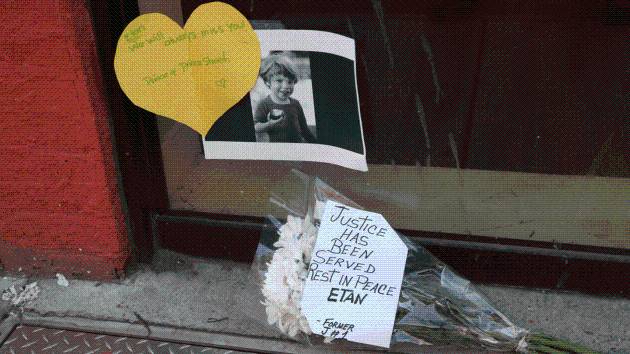 Etan
We will always miss you!
Prince & Prince Street
JUSTICE
HAS
BEEN
SERVED
REST IN PEACE
ETAN
- FORMER